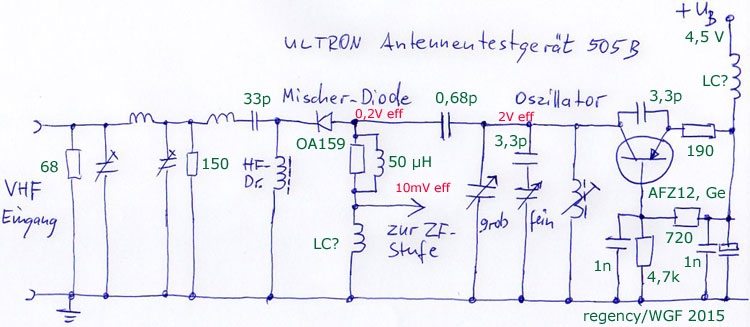 + U_B
4,5 V
ULTRON Antennentestgerät 505B
LC?
33p
Mischer-Diode
0,2V eff
0,68p
Oszillator
2V eff
3,3p
3,3p
OA159
190
68
150
HF-
Dr.
50 µH
VHF
Eingang
10mV eff
AFZ12, Ge
grob
fein
zur ZF-
Stufe
LC?
720
1n
4,7k
1n
regency/WGF 2015